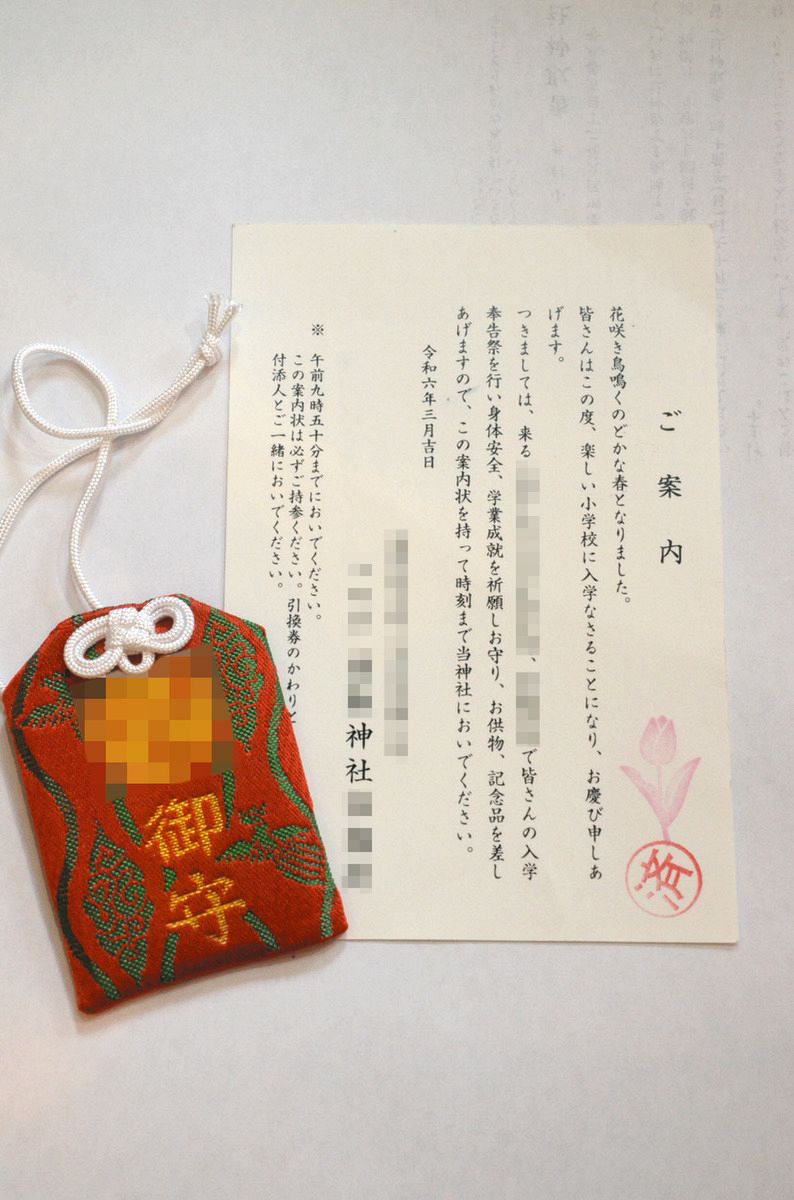 ご案内
花咲き鳥鳴くのどかな春となりました。
皆さんはこの度、楽しい小学校に入学なさることになり、お慶び申しあ
げます。
つきましては、来る、で皆さんの入学
奉告祭を行い身体安全、学業成就を祈願しお守り、お供物、記念品を差し
あげますので、この案内状を持って時刻まで当神社においでください。
令和六年三月吉日
神社
※ 午前九時五十分までにおいでください。
この案内状は必ずご持参ください。引換券のかわりと
付添人とご一緒においでください。
済
御守